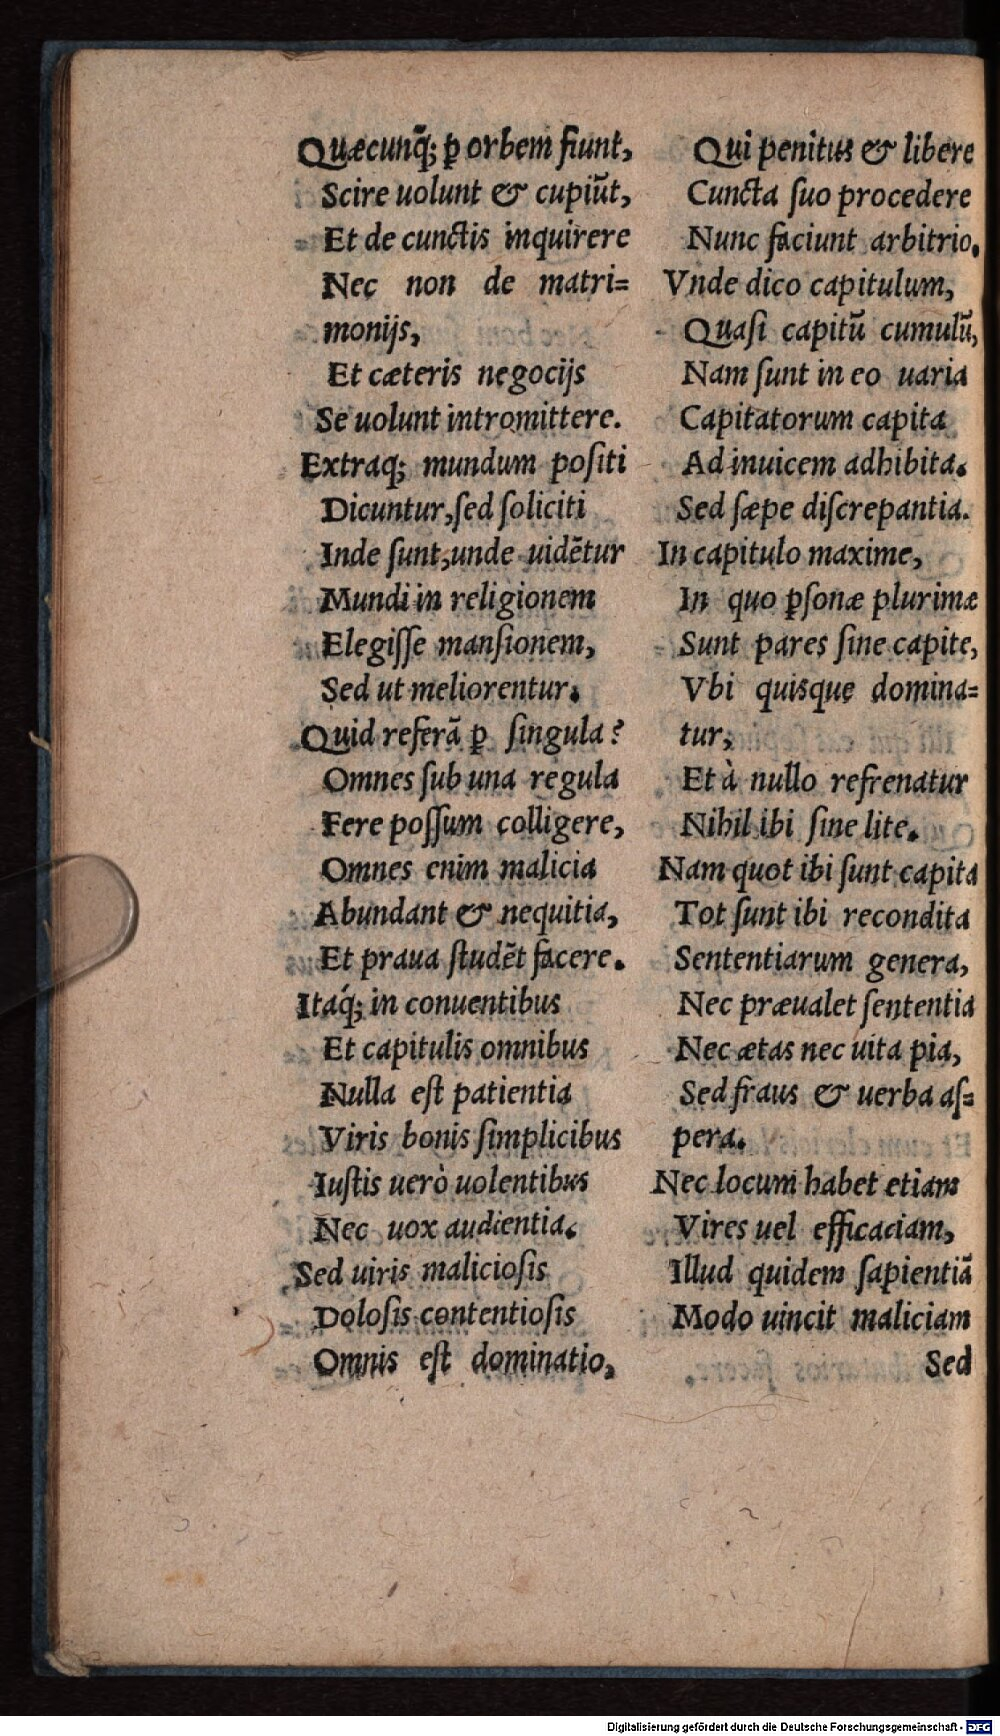 Quæcunq̃; ꝑ orbem fiunt,
Scire uolunt & cupiũt,
Et de cunctis inquirere
Nec non de matri=
monijs,
Et cæteris negocijs
Se uolunt intromittere.
Extraq; mundum poſiti
Dicuntur, ſed ſoliciti
Inde ſunt, unde uidẽtur
Mundi in religionem
Elegiſſe manſionem,
Sed ut meliorentur.
Quid referã ꝑ ſingula?
Omnes ſub una regula
Fere poſſum colligere,
Omnes enim malicia
Abundant & nequitia,
Et praua ſtudẽt facere.
Itaq́; in conuentibus
Et capitulis omnibus
Nulla eſt patientia
Viris bonis ſimplicibus
Iuſtis uerò uolentibus
Nec uox audientia.
Sed uiris malicioſis
Doloſis contentioſis
Omnis eſt dominatio,
Qui penitus & libere
Cuncta ſuo procedere
Nunc faciunt arbitrio.
Vnde dico capitulum,
Quaſi capitũ cumulũ,
Nam ſunt in eo uaria
Capitatorum capita
Ad inuicem adhibita.
Sed ſæpe diſcrepantia.
In capitulo maxime,
In quo ꝑſonæ plurimæ
Sunt pares ſine capite,
Vbi quisque domina=
tur,
Et à nullo refrenatur
Nihil ibi ſine lite.
Nam quot ibi ſunt capita
Tot ſunt ibi recondita
Sententiarum genera,
Nec præualet ſententia
Nec ætas nec uita pia,
Sed fraus & uerba aſ=
pera.
Nec locum habet etiam
Vires uel efficaciam,
Illud quidem ſapientiã
Modo uincit maliciam
Sed
Digitalisierung gefördert durch die Deutsche Forschungsgemeinschaft - DFG